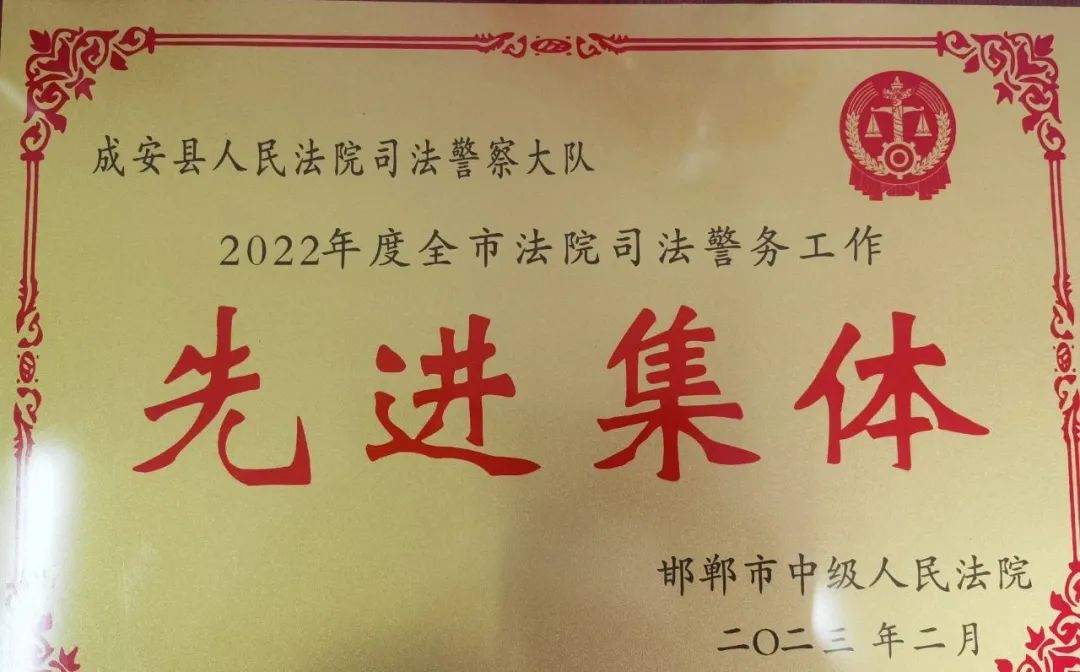 成安县人民法院司法警察大队
2022年度全市法院司法警务工作
先进集体
邯郸市中级人民法院
二〇二三年二月